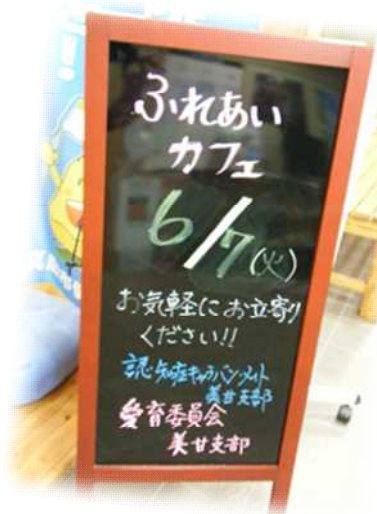 ふれあい
カフェ
6/7(火)
お気軽にお立寄り
ください!!
認知症キャラバンメイト
美甘支部
愛育委員会
美甘支部